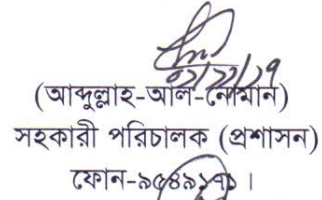 ০১/১১/১৭
(আব্দুল্লাহ-আল-নোমান)
সহকারী পরিচালক (প্রশাসন)
ফোন-৯৫৪৯১৭১।